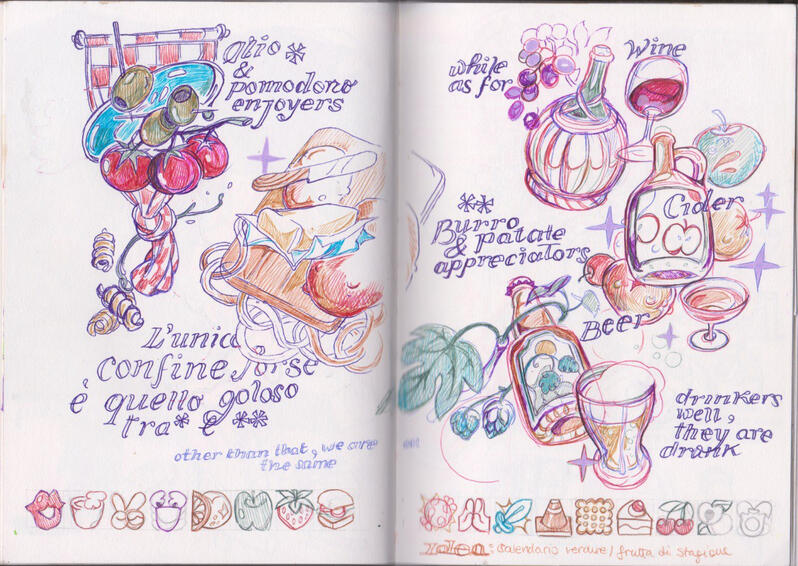 Olio *
&
pomodoro
enjoyers
L'unico
confine forse
è quello goloso
tra* e **
other than that, we are
the same
while
as for
Wine
**
Burro
& patate
appreciators
Cider
Beer
drinkers
well,
they are
drunk
Idea: Calendario verdure / frutta di stagione